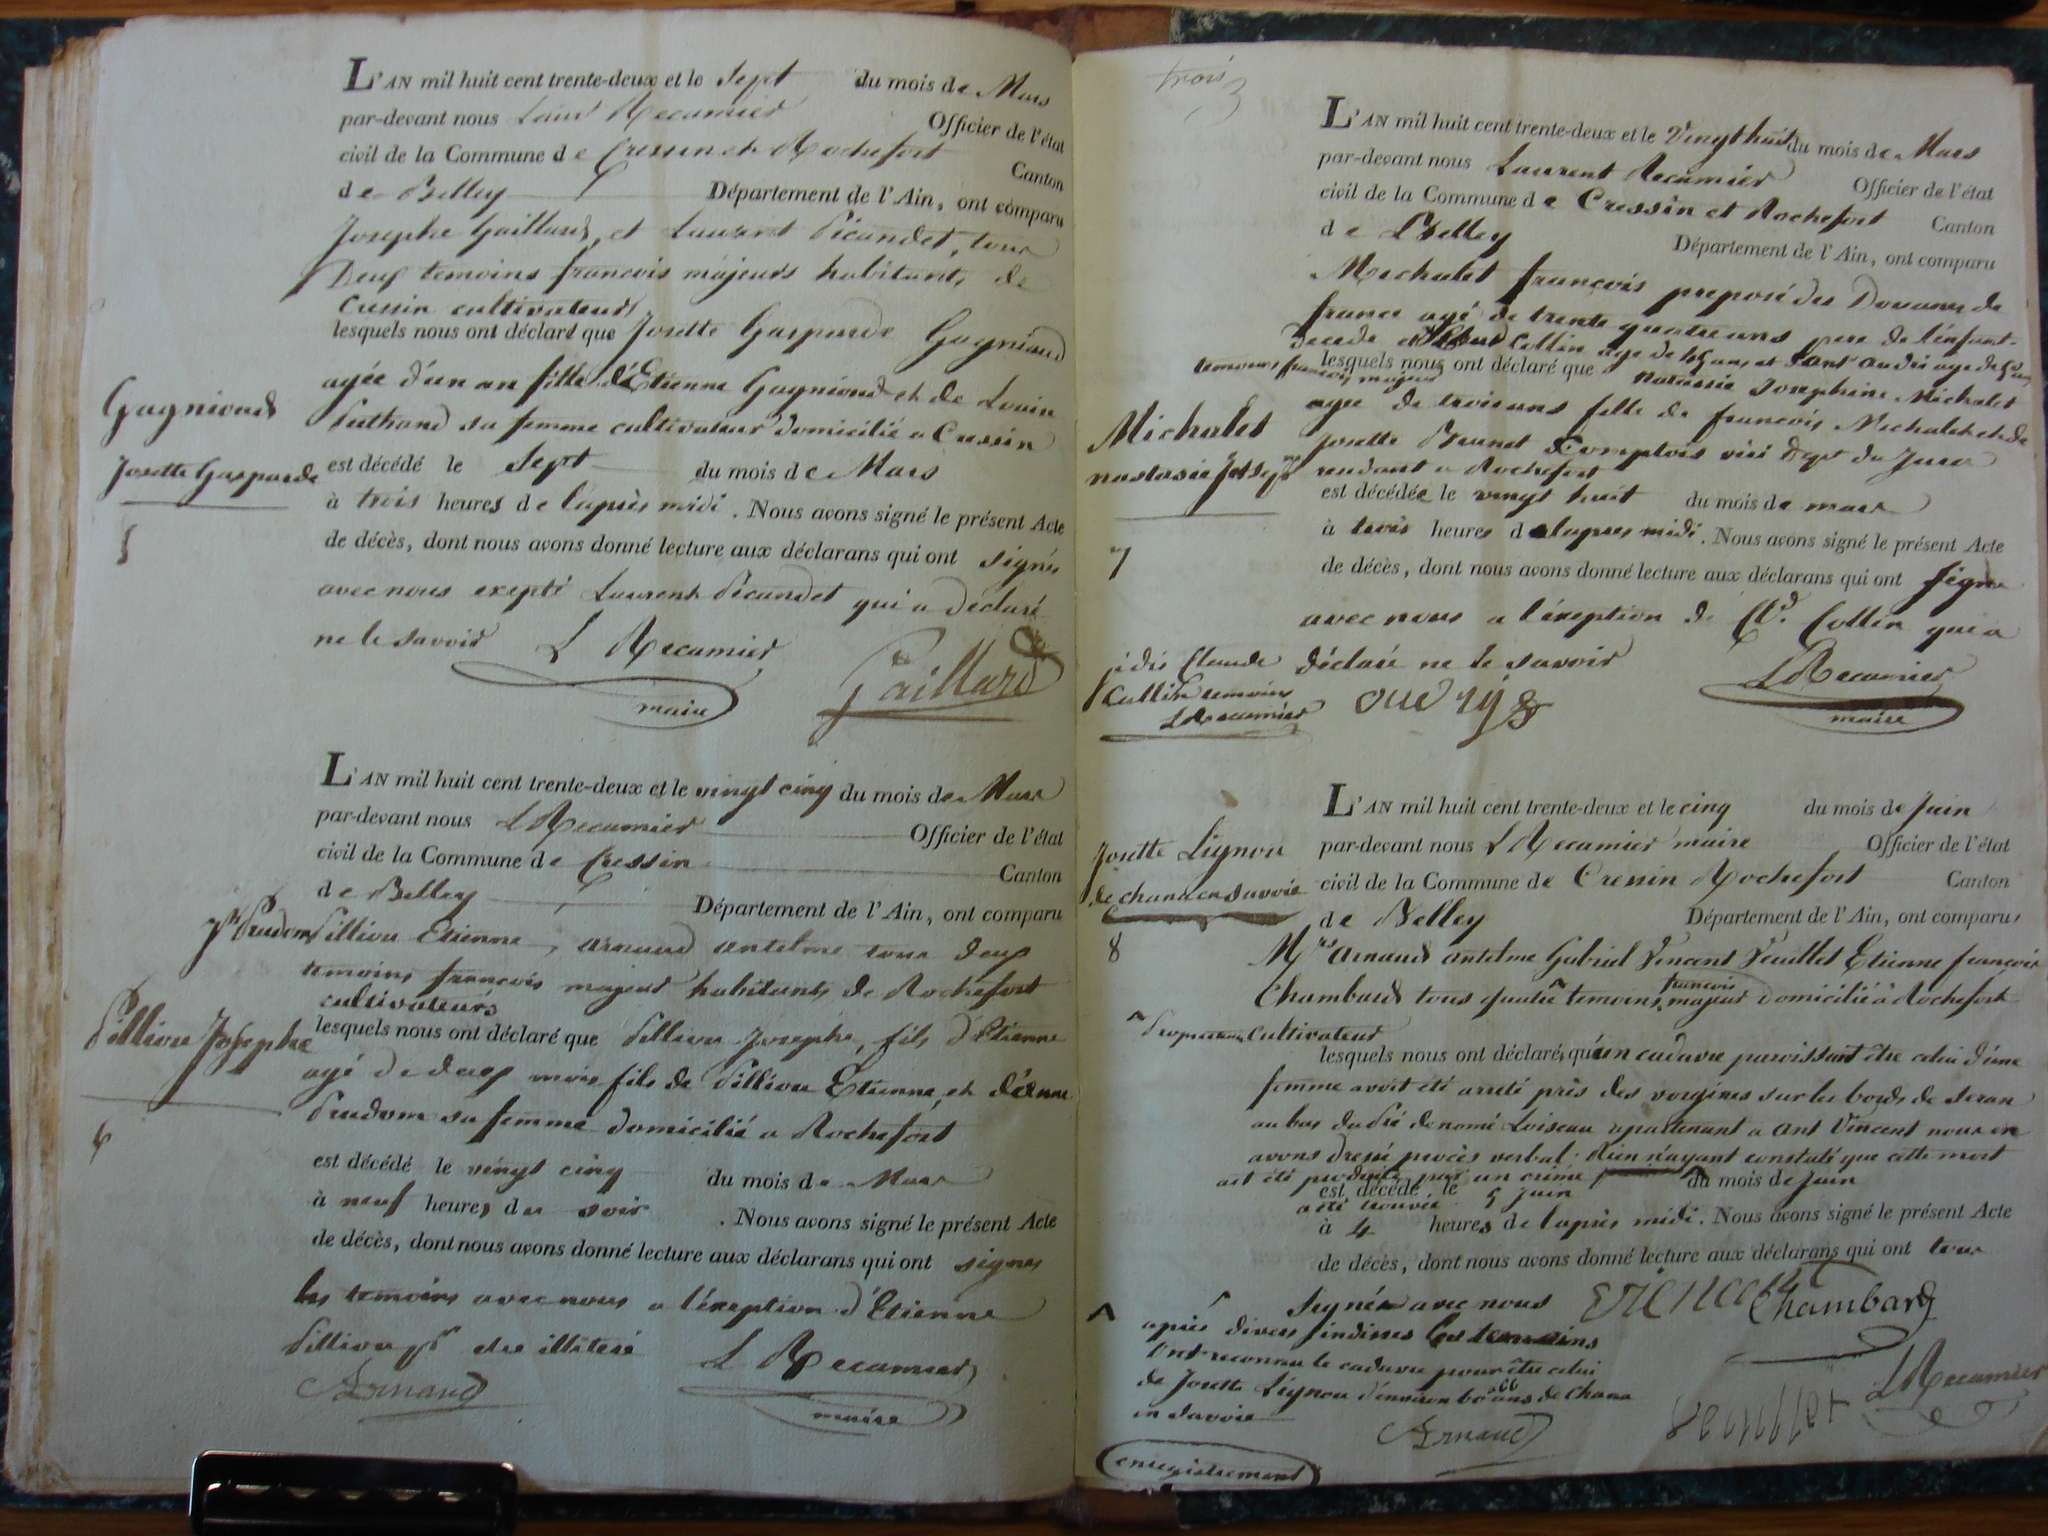 L'AN mil huit cent trente-deux et le sept du mois de Mars
par-devant nous Laur Recamier Officier de l'état
civil de la Commune de Cressin et Rochefort Canton
de Belley Département de l'Ain, ont comparu
Josephe Gaillard, et Laurent Picandet, tous
Deux temoins francois majeurs habitants de
Cressin cultivateurs
lesquels nous ont déclaré que Josette Gasparde Gagnioud
agée d'un an fille d'Etienne Gagnioud et de Louise
sa femme cultivateur domicilié a Cressin
est décédé le Sept du mois de Mars
à trois heures de l'après midi. Nous avons signé le présent Acte
de décès, dont nous avons donné lecture aux déclarans qui ont signés
avec nous exepté Laurent Picandet qui a déclaré
ne le savoir L Recamier Gaillard
maire
Gagnioud
Josette Gasparde
5
L'AN mil huit cent trente-deux et le vingt cinq du mois de Mars
par-devant nous L Recamier Officier de l'état
civil de la Commune de Cressin Canton
de Belley Département de l'Ain, ont comparu
Pillion Etienne, arnaud antelme tous deux
temoins francois majeur habitants de Rochefort
cultivateurs
lesquels nous ont déclaré que Pillion Josephe, fils d'Etienne
agé de deux mois fils de Pillion Etienne et d'
Prudome sa femme domicilié a Rochefort
est décédé le vingt cinq du mois de Mars
à neuf heures du soir. Nous avons signé le présent Acte
de décès, dont nous avons donné lecture aux déclarans qui ont signés
les temoins avec nous a l'éxeption d'Etienne
Pillion illiteré L Recamier
Arnaud maire
Pillion Josephe
6
trois
3
L'AN mil huit cent trente-deux et le Vingt huit du mois de Mars
par-devant nous Laurent Recamier Officier de l'état
civil de la Commune de Cressin et Rochefort Canton
de Belley Département de l'Ain, ont comparu
Michalet françois preposé des Douanes de
france agé de trente quatre ans pere de l'enfant
decede et Claud Collin age de ans et andri age de
temoins francois majeur
lesquels nous ont déclaré que nastasie Josephine Michalet
agee de trois ans fille de francois Michalet et de
Josette Brunet Dept du Jura
a Rochefort
est décédée le vingt huit du mois de mars
à trois heures de l'apres midi. Nous avons signé le présent Acte
de décès, dont nous avons donné lecture aux déclarans qui ont signe
avec nous a l'éxeption de Cld. Collin qui a
déclaré ne le savoir L Recamier
maire
Michalet
nastasie
7
Claude
Collin temoin
L Recamier
L'AN mil huit cent trente-deux et le cinq du mois de Juin
par-devant nous L Recamier maire Officier de l'état
civil de la Commune de Cressin Rochefort Canton
de Belley Département de l'Ain, ont comparus
Mrs Arnaud antelme Gabriel Vincent Veuillet Etienne francois
Chambard tous quatre temoins francois majeur domicilié à Rochefort
cultivateur
lesquels nous ont déclaré, qu'un cadavre paroissant être celui d'une
femme avoit été arreté près des vorgines sur les bords de seran
au bas du Pré denomé Loiseau apartenant a ant Vincent nous en
avons dressé procès verbal. Rien n'ayant constaté que cette mort
ait été produite par un crime
est décédé le 5 juin du mois de Juin
a été trouvée
à 4 heures de l'après midi. Nous avons signé le présent Acte
de décès, dont nous avons donné lecture aux déclarans qui ont tous
Signés avec nous Chambard
après divers indices les temoins
ont reconnu le cadavre pour être celui
de Josette Lignon d'environ 60 ans de Chana
en Savoie
Arnaud L Recamier
Josette Lignon
de chana en Savoie
8
enregistrement